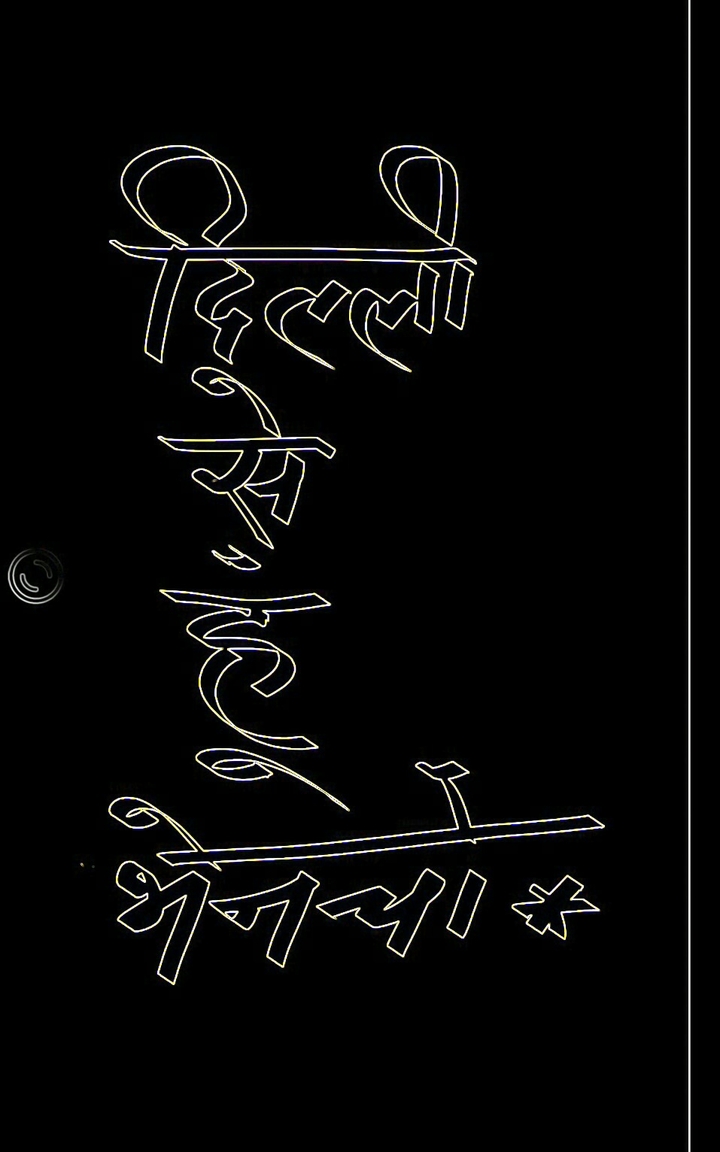 दिल्ली
से
हूँ
भेनचो*